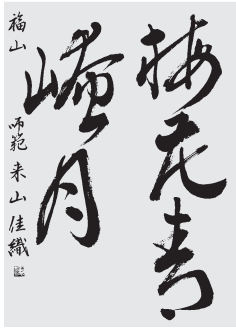 梅花青
崦月
福山　師範　来山佳織